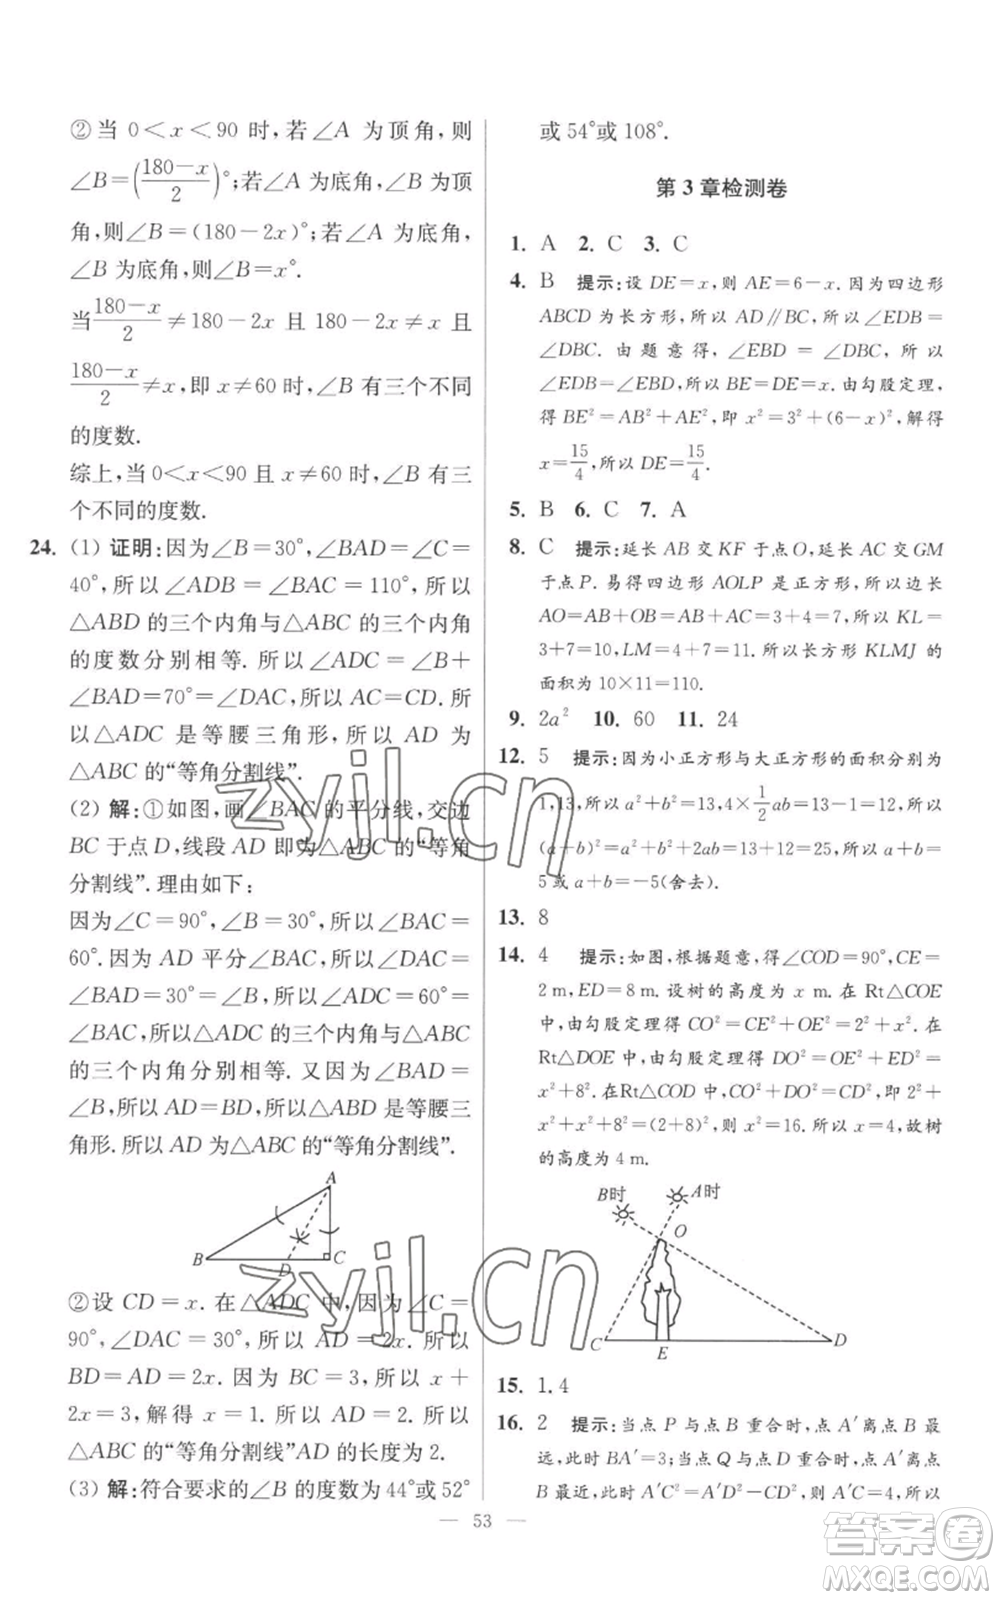 ②当 0＜x＜90 时,若∠A 为顶角,则
∠B=((180-x)/2)°;若∠A 为底角,∠B 为顶
角,则∠B=(180-2x)°;若∠A 为底角,
∠B 为底角,则∠B=x°.
当(180-x)/2≠180-2x 且 180-2x≠x 且
(180-x)/2≠x,即 x≠60 时,∠B 有三个不同
的度数.
综上,当 0＜x＜90 且 x≠60 时,∠B 有三
个不同的度数.
24. (1) 证明:因为∠B=30°,∠BAD=∠C=
40°,所以∠ADB=∠BAC=110°,所以
△ABD 的三个内角与△ABC 的三个内角
的度数分别相等. 所以∠ADC=∠B+
∠BAD=70°=∠DAC,所以 AC=CD. 所
以△ADC 是等腰三角形,所以 AD 为
△ABC 的“等角分割线”.
(2) 解:①如图,画∠BAC 的平分线,交边
BC 于点 D,线段 AD 即为△ABC 的“等角
分割线”.理由如下:
因为∠C=90°,∠B=30°,所以∠BAC=
60°.因为 AD 平分∠BAC,所以∠DAC=
∠BAD=30°=∠B,所以∠ADC=60°=
∠BAC,所以△ADC 的三个内角与△ABC 的
三个内角分别相等. 又因为∠BAD=
∠B,所以 AD=BD,所以△ABD 是等腰三
角形.所以 AD 为△ABC 的“等角分割线”.
A
B
D
C
②设 CD=x. 在△ADC 中,因为∠C=
90°,∠DAC=30°,所以 AD=2x. 所以
BD=AD=2x. 因为 BC=3,所以 x+
2x=3,解得 x=1.所以 AD=2.所以
△ABC 的“等角分割线”AD 的长度为 2.
(3) 解:符合要求的∠B 的度数为 44°或 52°
或 54°或 108°.
第 3 章检测卷
1. A 2. C 3. C
4. B 提示:设 DE=x,则 AE=6-x.因为四边形
ABCD 为长方形,所以 AD∥BC,所以∠EDB=
∠DBC. 由题意得,∠EBD=∠DBC,所以
∠EDB=∠EBD,所以 BE=DE=x.由勾股定理,
得 BE²=AB²+AE²,即 x²=3²+(6-x)²,解得
x=15/4,所以 DE=15/4.
5. B 6. C 7. A
8. C 提示:延长 AB 交 KF 于点 O,延长 AC 交 GM
于点 P. 易得四边形 AOLP 是正方形,所以边长
AO=AB+OB=AB+AC=3+4=7,所以 KL=
3+7=10,LM=4+7=11.所以长方形 KLMJ 的
面积为 10×11=110.
9. 2a² 10. 60 11. 24
12. 5 提示:因为小正方形与大正方形的面积分别为
1,13,所以 a²+b²=13,4×1/2ab=13-1=12,所以
(a+b)²=a²+b²+2ab=13+12=25,所以 a+b=
5或 a+b=-5(舍去).
13. 8
14. 4 提示:如图,根据题意,得∠COD=90°,CE=
2 m,ED=8 m. 设树的高度为 x m. 在 Rt△COE
中,由勾股定理得 CO²=CE²+OE²=2²+x². 在
Rt△DOE 中,由勾股定理得 DO²=OE²+ED²=
x²+8².在Rt△COD 中,CO²+DO²=CD²,即 2²+
x²+x²+8²=(2+8)²,所以 x²=16.所以 x=4,故树
的高度为 4 m.
B时
A时
O
C
E
D
15. 1.4
16. 2 提示:当点 P 与点 B 重合时,点 A′离点 B 最
远,此时 BA′=3;当点 Q 与点 D 重合时,点 A′离点
B 最近,此时 A′C²=A′D²-CD²=5²-3²=4²,所以
— 53 —
zyjl.cn
zyjl.cn
答案圈
MXQE.COM